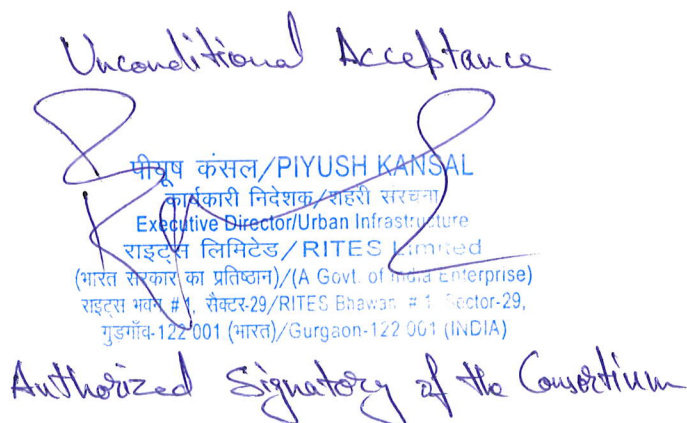 Unconditional Acceptance
पीयूष कंसल/PIYUSH KANSAL
कार्यकारी निदेशक/शहरी संरचना
Executive Director/Urban Infrastructure
राइट्स लिमिटेड/RITES Limited
(भारत सरकार का प्रतिष्ठान)/(A Govt. of India Enterprise)
राइट्स भवन #1, सैक्टर-29/RITES Bhawan # 1 Sector-29,
गुड़गाँव-122 001 (भारत)/Gurgaon-122 001 (INDIA)
Authorized Signatory of the Consortium